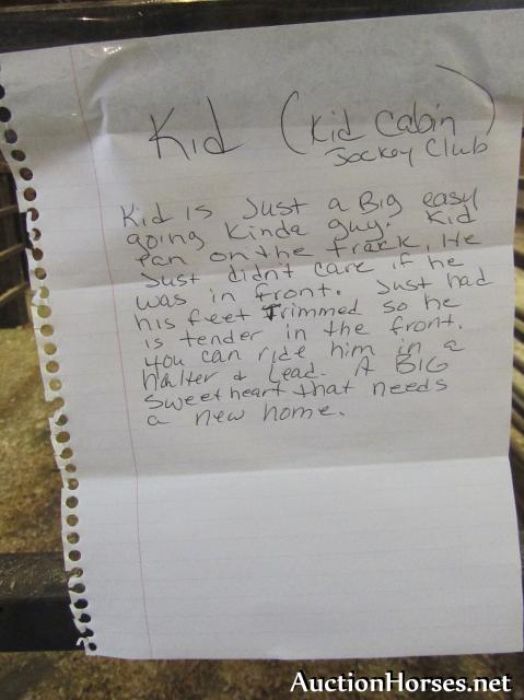 Kid (Kid Cabin)
Jockey Club
Kid is Just a Big easy
going Kinda guy. Kid
ran on the track, He
Just didnt care if he
was in front. Just had
his feet Trimmed so he
is tender in the front.
you can ride him in a
halter & Lead. A BIG
sweetheart that needs
a new home.
AuctionHorses.net